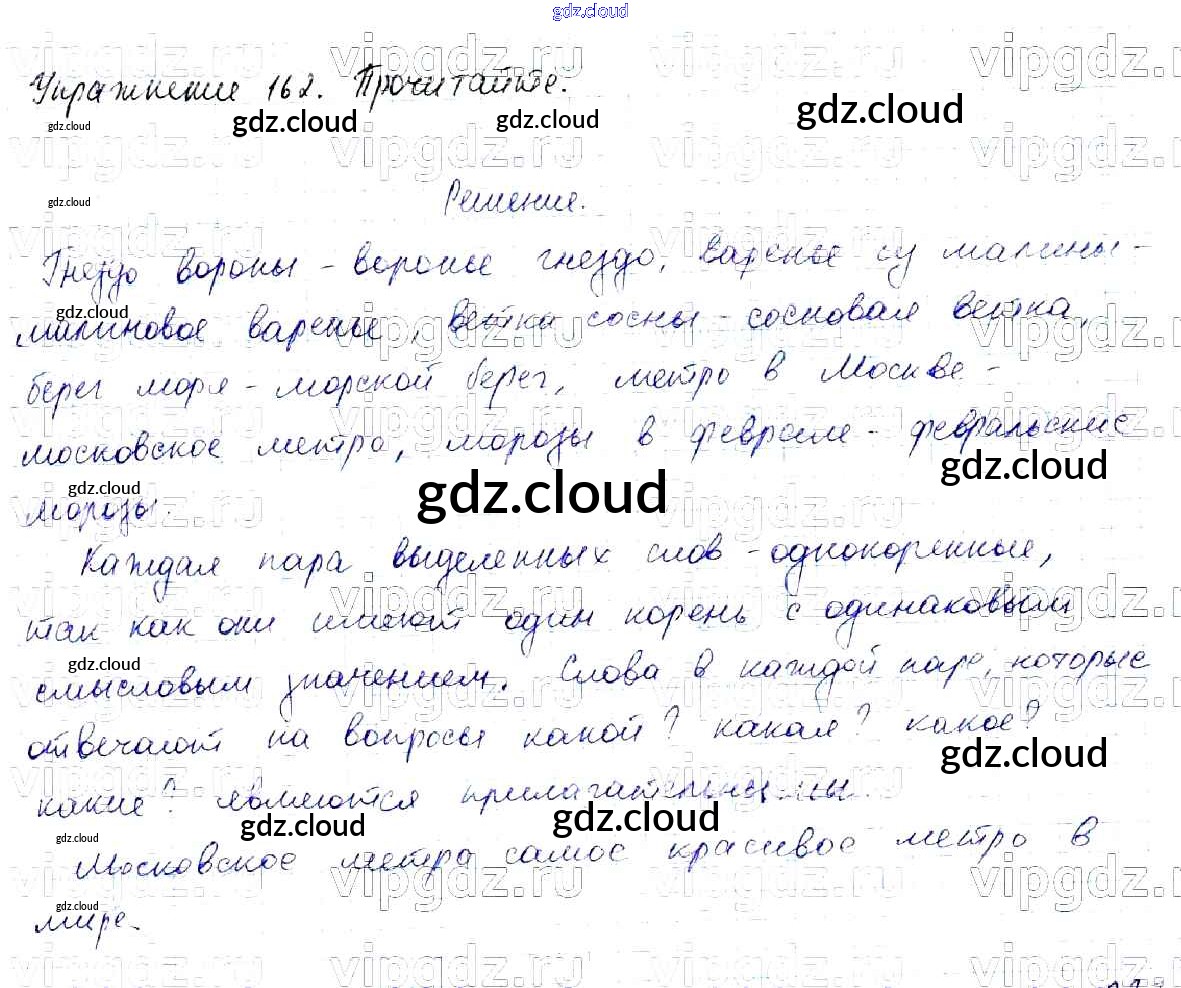 gdz.cloud
Упражнение 162. Прочитайте.
gdz.cloud gdz.cloud gdz.cloud gdz.cloud
Решение.
gdz.cloud
Гнездо вороны - воронье гнездо, варенье из малины -
gdz.cloud
малиновое варенье, ветка сосны - сосновая ветка,
берег моря - морской берег, метро в Москве -
московское метро, морозы в феврале - февральские
gdz.cloud gdz.cloud gdz.cloud
морозы.
Каждая пара выделенных слов - однокоренные,
так как они имеют один корень с одинаковым
gdz.cloud
смысловым значением. Слова в каждой паре, которые
отвечают на вопросы какой? какая? какое?
gdz.cloud
какие? являются прилагательными.
gdz.cloud gdz.cloud gdz.cloud
Московское метро самое красивое метро в
gdz.cloud
мире.
vipgdz.ru vipgdz.ru vipgdz.ru